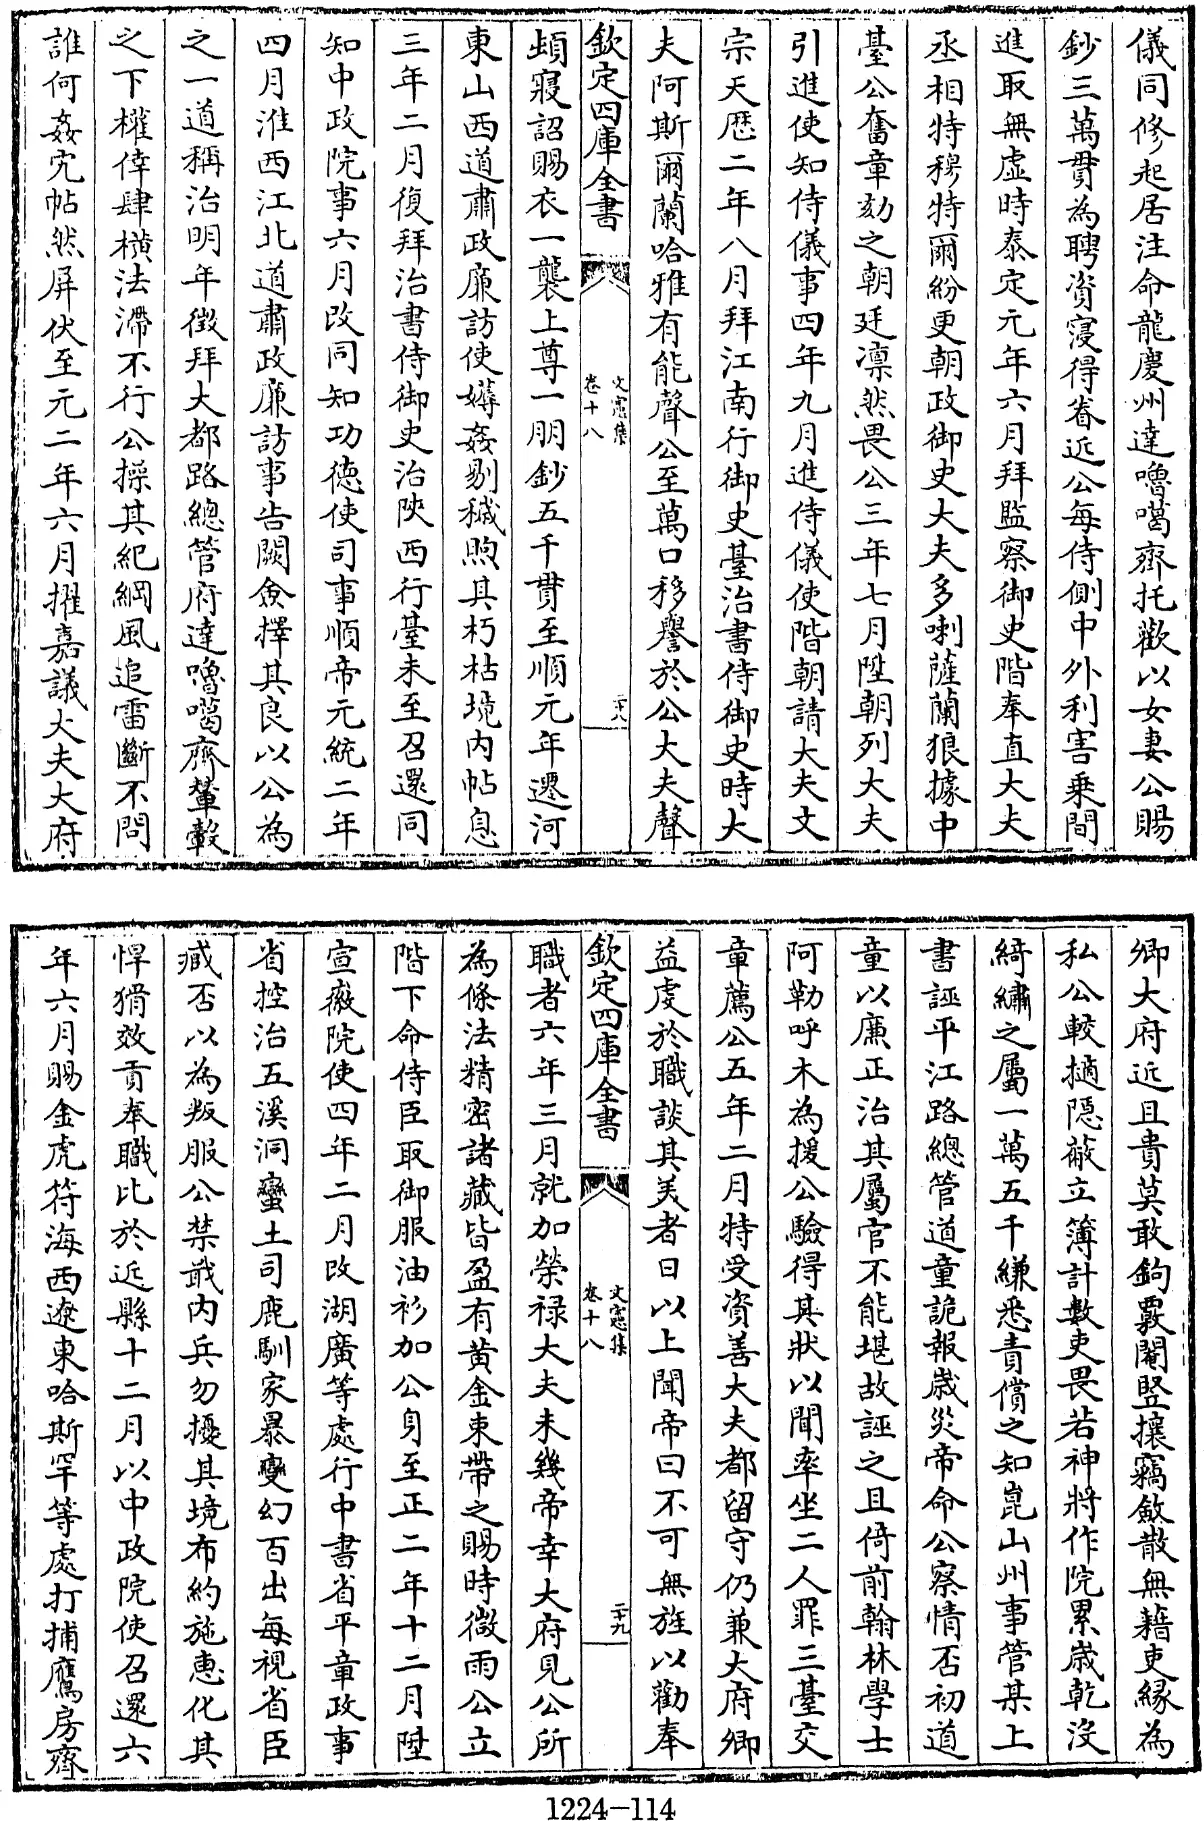 儀同修起居注命龍慶州達嚕噶齊托歡以女妻公賜
鈔三萬貫為聘資寖得眷近公每侍側中外利害乗間
進取無虚時泰定元年六月拜監察御史階奉直大夫
丞相特穆特爾紛更朝政御史大夫多喇薩蘭狼據中
臺公奮章劾之朝廷凛然畏公三年七月陞朝列大夫
引進使知侍儀事四年九月進侍儀使階朝請大夫文
宗天厯二年八月拜江南行御史臺治書侍御史時大
夫阿斯爾蘭哈雅有能聲公至萬口移譽於公大夫聲
欽定四庫全書
文憲集
卷十八
二十八
頓寢詔賜衣一襲上尊一朋鈔五千貫至順元年遷河
東山西道肅政廉訪使薅姦剔穢煦其朽枯境内帖息
三年二月復拜治書侍御史治陜西行臺未至召還同
知中政院事六月改同知功德使司事順帝元統二年
四月淮西江北道肅政廉訪事告闕僉擇其良以公為
之一道稱治明年徴拜大都路總管府達嚕噶齊輦轂
之下權倖肆横法滯不行公操其紀綱風追雷斷不問
誰何姦宄帖然屏伏至元二年六月擢嘉議大夫大府
卿大府近且貴莫敢鉤覈閹竪攘竊斂散無藉吏緣為
私公較擿隠蔽立簿計數吏畏若神將作院累歳乾沒
綺繡之屬一萬五千縑悉責償之知崑山州事管某上
書誣平江路總管道童詭報歳災帝命公察情否初道
童以廉正治其屬官不能堪故誣之且倚前翰林學士
阿勒呼木為援公驗得其狀以聞率坐二人罪三臺交
章薦公五年二月特受資善大夫都留守仍兼大府卿
益虔於職談其美者日以上聞帝曰不可無旌以勸奉
欽定四庫全書
文憲集
卷十八
二十九
職者六年三月就加榮禄大夫未幾帝幸大府見公所
為條法精密諸藏皆盈有黄金束帶之賜時微雨公立
階下命侍臣取御服油衫加公身至正二年十二月陞
宣徽院使四年二月改湖廣等處行中書省平章政事
省控治五溪洞蠻土司鹿馴豕暴變幻百出毎視省臣
臧否以為叛服公禁戢内兵勿擾其境布約施惠化其
悍猾效貢奉職比於近縣十二月以中政院使召還六
年六月賜金虎符海西遼東哈斯罕等處打捕鷹房齊
1224-114